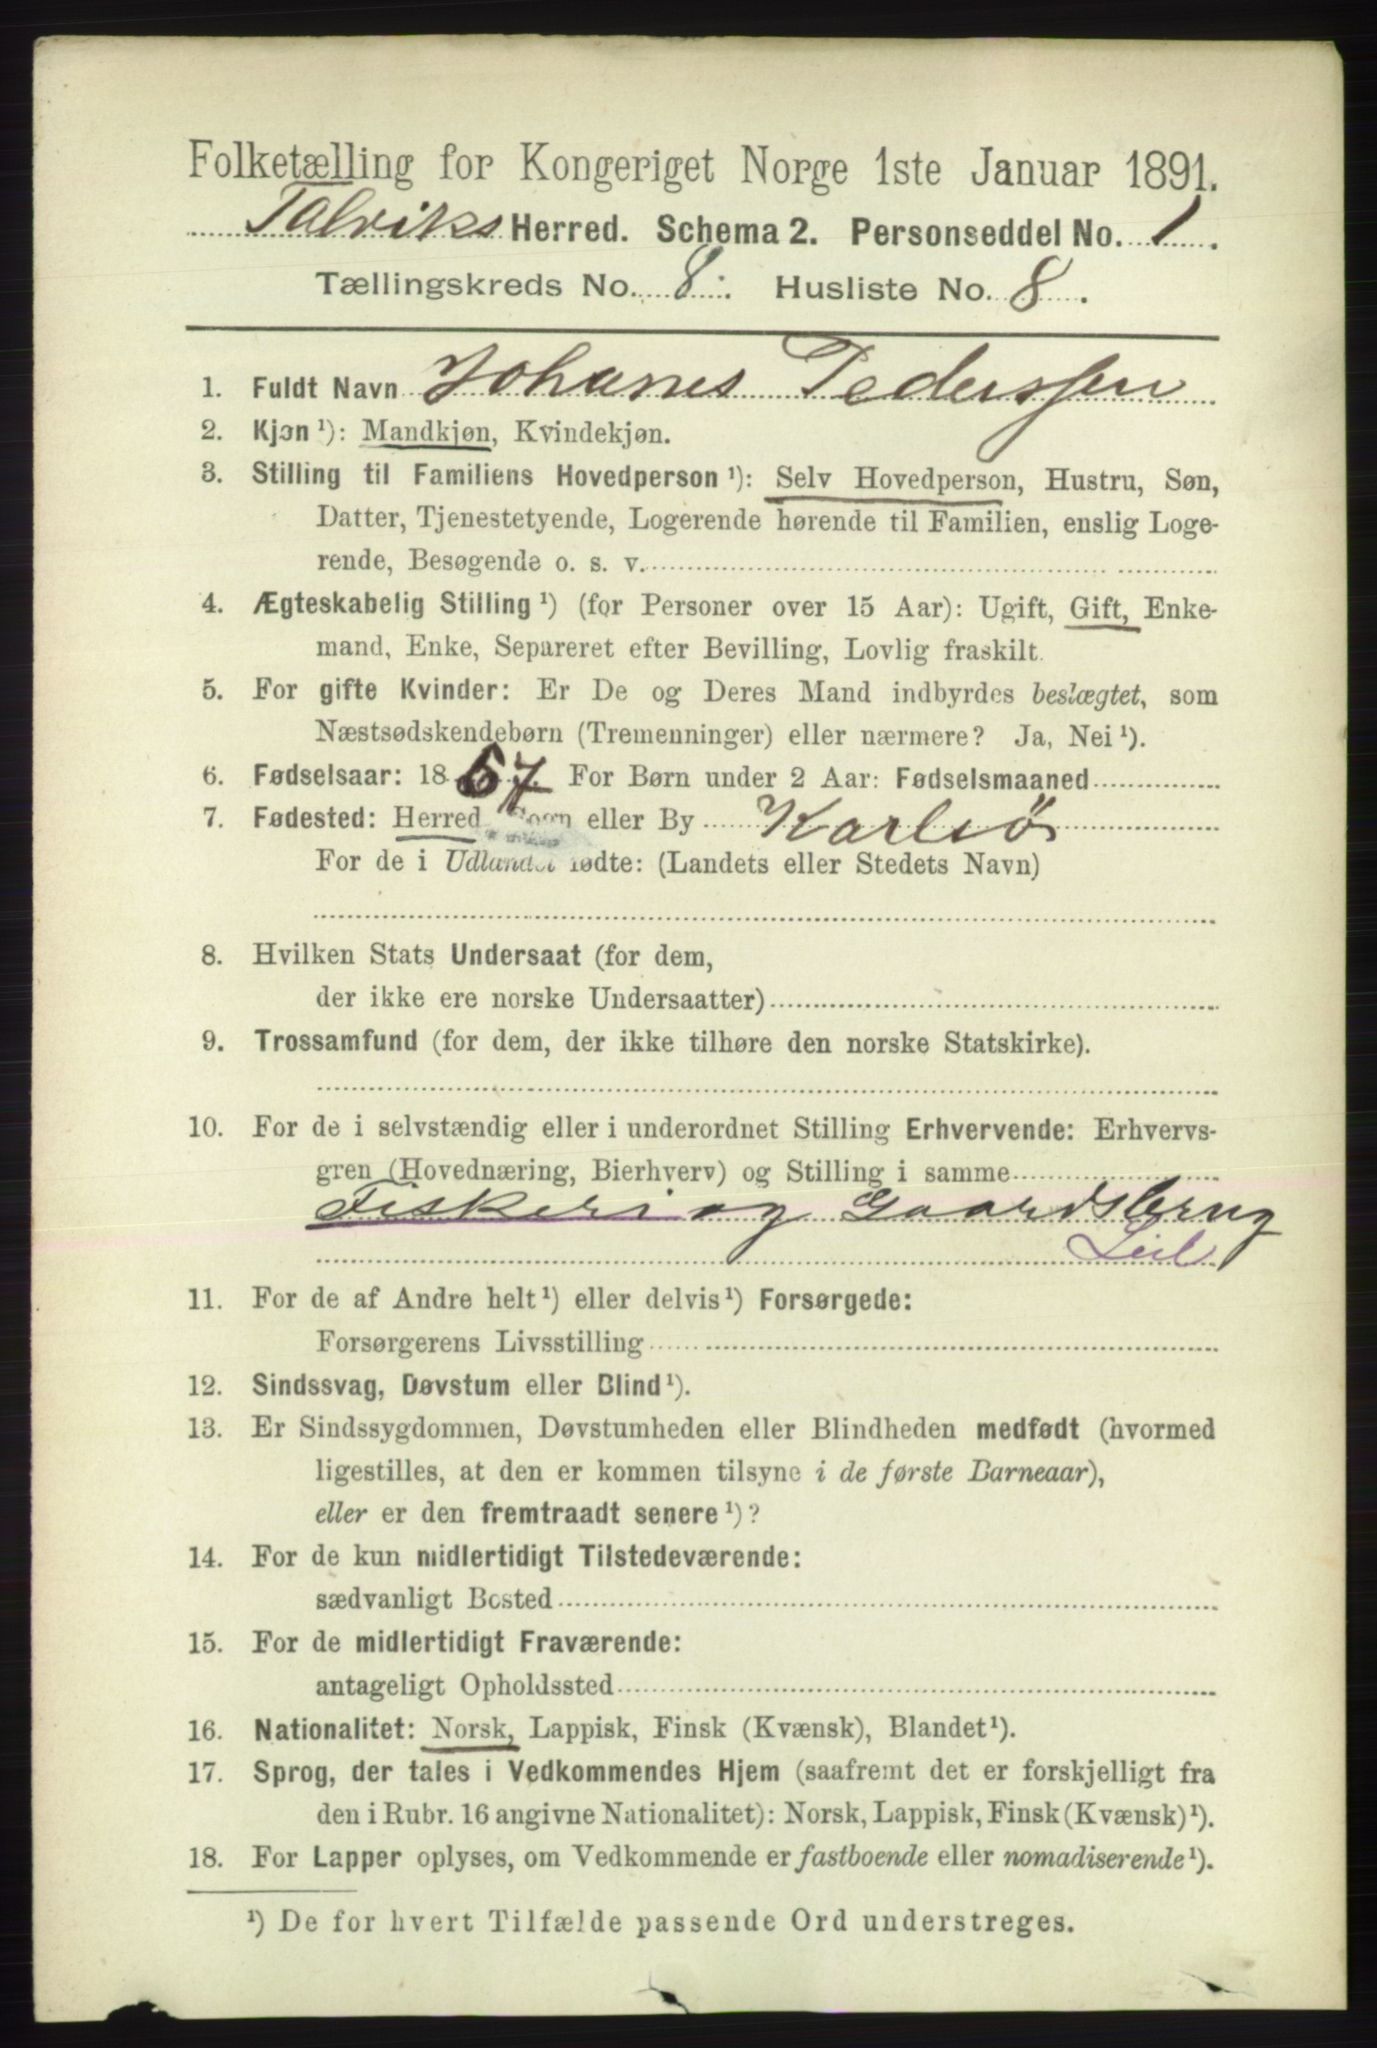 Folketælling for Kongeriget Norge 1ste Januar 1891.
Talviks Herred. Schema 2. Personseddel No. 1.
Tællingskreds No. 8. Husliste No. 8.
1. Fuldt Navn Johanes Pederssen
2. Kjøn ¹): Mandkjøn, Kvindekjøn.
3. Stilling til Familiens Hovedperson ¹): Selv Hovedperson, Hustru, Søn,
Datter, Tjenestetyende, Logerende hørende til Familien, enslig Loge-
rende, Besøgende o. s. v.
4. Ægteskabelig Stilling ¹) (for Personer over 15 Aar): Ugift, Gift, Enke-
mand, Enke, Separeret efter Bevilling, Lovlig fraskilt.
5. For gifte Kvinder: Er De og Deres Mand indbyrdes beslægtet, som
Næstsødskendebørn (Tremenninger) eller nærmere? Ja, Nei ¹).
6. Fødselsaar: 1867. For Børn under 2 Aar: Fødselsmaaned
7. Fødested: Herred, Sogn eller By Karlsø
For de i Udlandet fødte: (Landets eller Stedets Navn)
8. Hvilken Stats Undersaat (for dem,
der ikke ere norske Undersaatter)
9. Trossamfund (for dem, der ikke tilhøre den norske Statskirke).
10. For de i selvstændig eller i underordnet Stilling Erhvervende: Erhvervs-
gren (Hovednæring, Bierhverv) og Stilling i samme
Fiskeri og Gaardsbrug
Leil
11. For de af Andre helt ¹) eller delvis ¹) Forsørgede:
Forsørgerens Livsstilling
12. Sindssvag, Døvstum eller Blind ¹).
13. Er Sindssygdommen, Døvstumheden eller Blindheden medfødt (hvormed
ligestilles, at den er kommen tilsyne i de første Barneaar),
eller er den fremtraadt senere ¹)?
14. For de kun midlertidigt Tilstedeværende:
sædvanligt Bosted
15. For de midlertidigt Fraværende:
antageligt Opholdssted
16. Nationalitet: Norsk, Lappisk, Finsk (Kvænsk), Blandet ¹).
17. Sprog, der tales i Vedkommendes Hjem (saafremt det er forskjelligt fra
den i Rubr. 16 angivne Nationalitet): Norsk, Lappisk, Finsk (Kvænsk) ¹).
18. For Lapper oplyses, om Vedkommende er fastboende eller nomadiserende ¹).
¹) De for hvert Tilfælde passende Ord understreges.